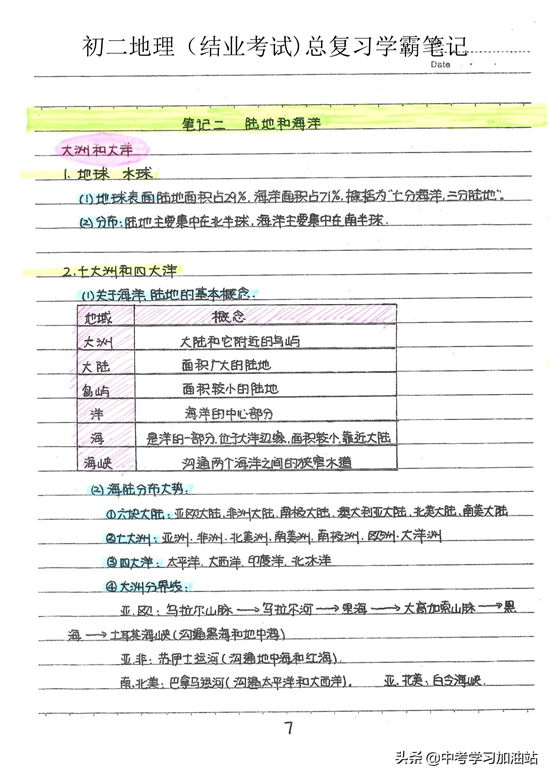 初二地理（结业考试)总复习学霸笔记
Date
笔记二 陆地和海洋
大洲和大洋
1. 地球 水球
(1)地球表面陆地面积占29%, 海洋面积占71%, 概括为"七分海洋,三分陆地"。
(2)分布:陆地主要集中在北半球,海洋主要集中在南半球.
2.七大洲和四大洋
(1)关于海洋、陆地的基本概念.
地域 概念
大洲 大陆和它附近的岛屿
大陆 面积广大的陆地
岛屿 面积较小的陆地
洋 海洋的中心部分
海 是洋的一部分,位于大洋边缘,面积较小,靠近大陆
海峡 沟通两个海洋之间的狭窄水道
(2)海陆分布大势:
①六块大陆:亚欧大陆、非洲大陆、南极大陆、澳大利亚大陆、北美大陆、南美大陆
②七大洲:亚洲、非洲、北美洲、南美洲、南极洲、欧洲、大洋洲
③四大洋:太平洋、大西洋、印度洋、北冰洋
④大洲分界线:
亚、欧:乌拉尔山脉→乌拉尔河→里海→大高加索山脉→黑
海→土耳其海峡(沟通黑海和地中海)
亚、非:苏伊士运河(沟通地中海和红海).
南、北美:巴拿马运河(沟通太平洋和大西洋)。 亚、北美:白令海峡.
7
头条@中考学习加油站